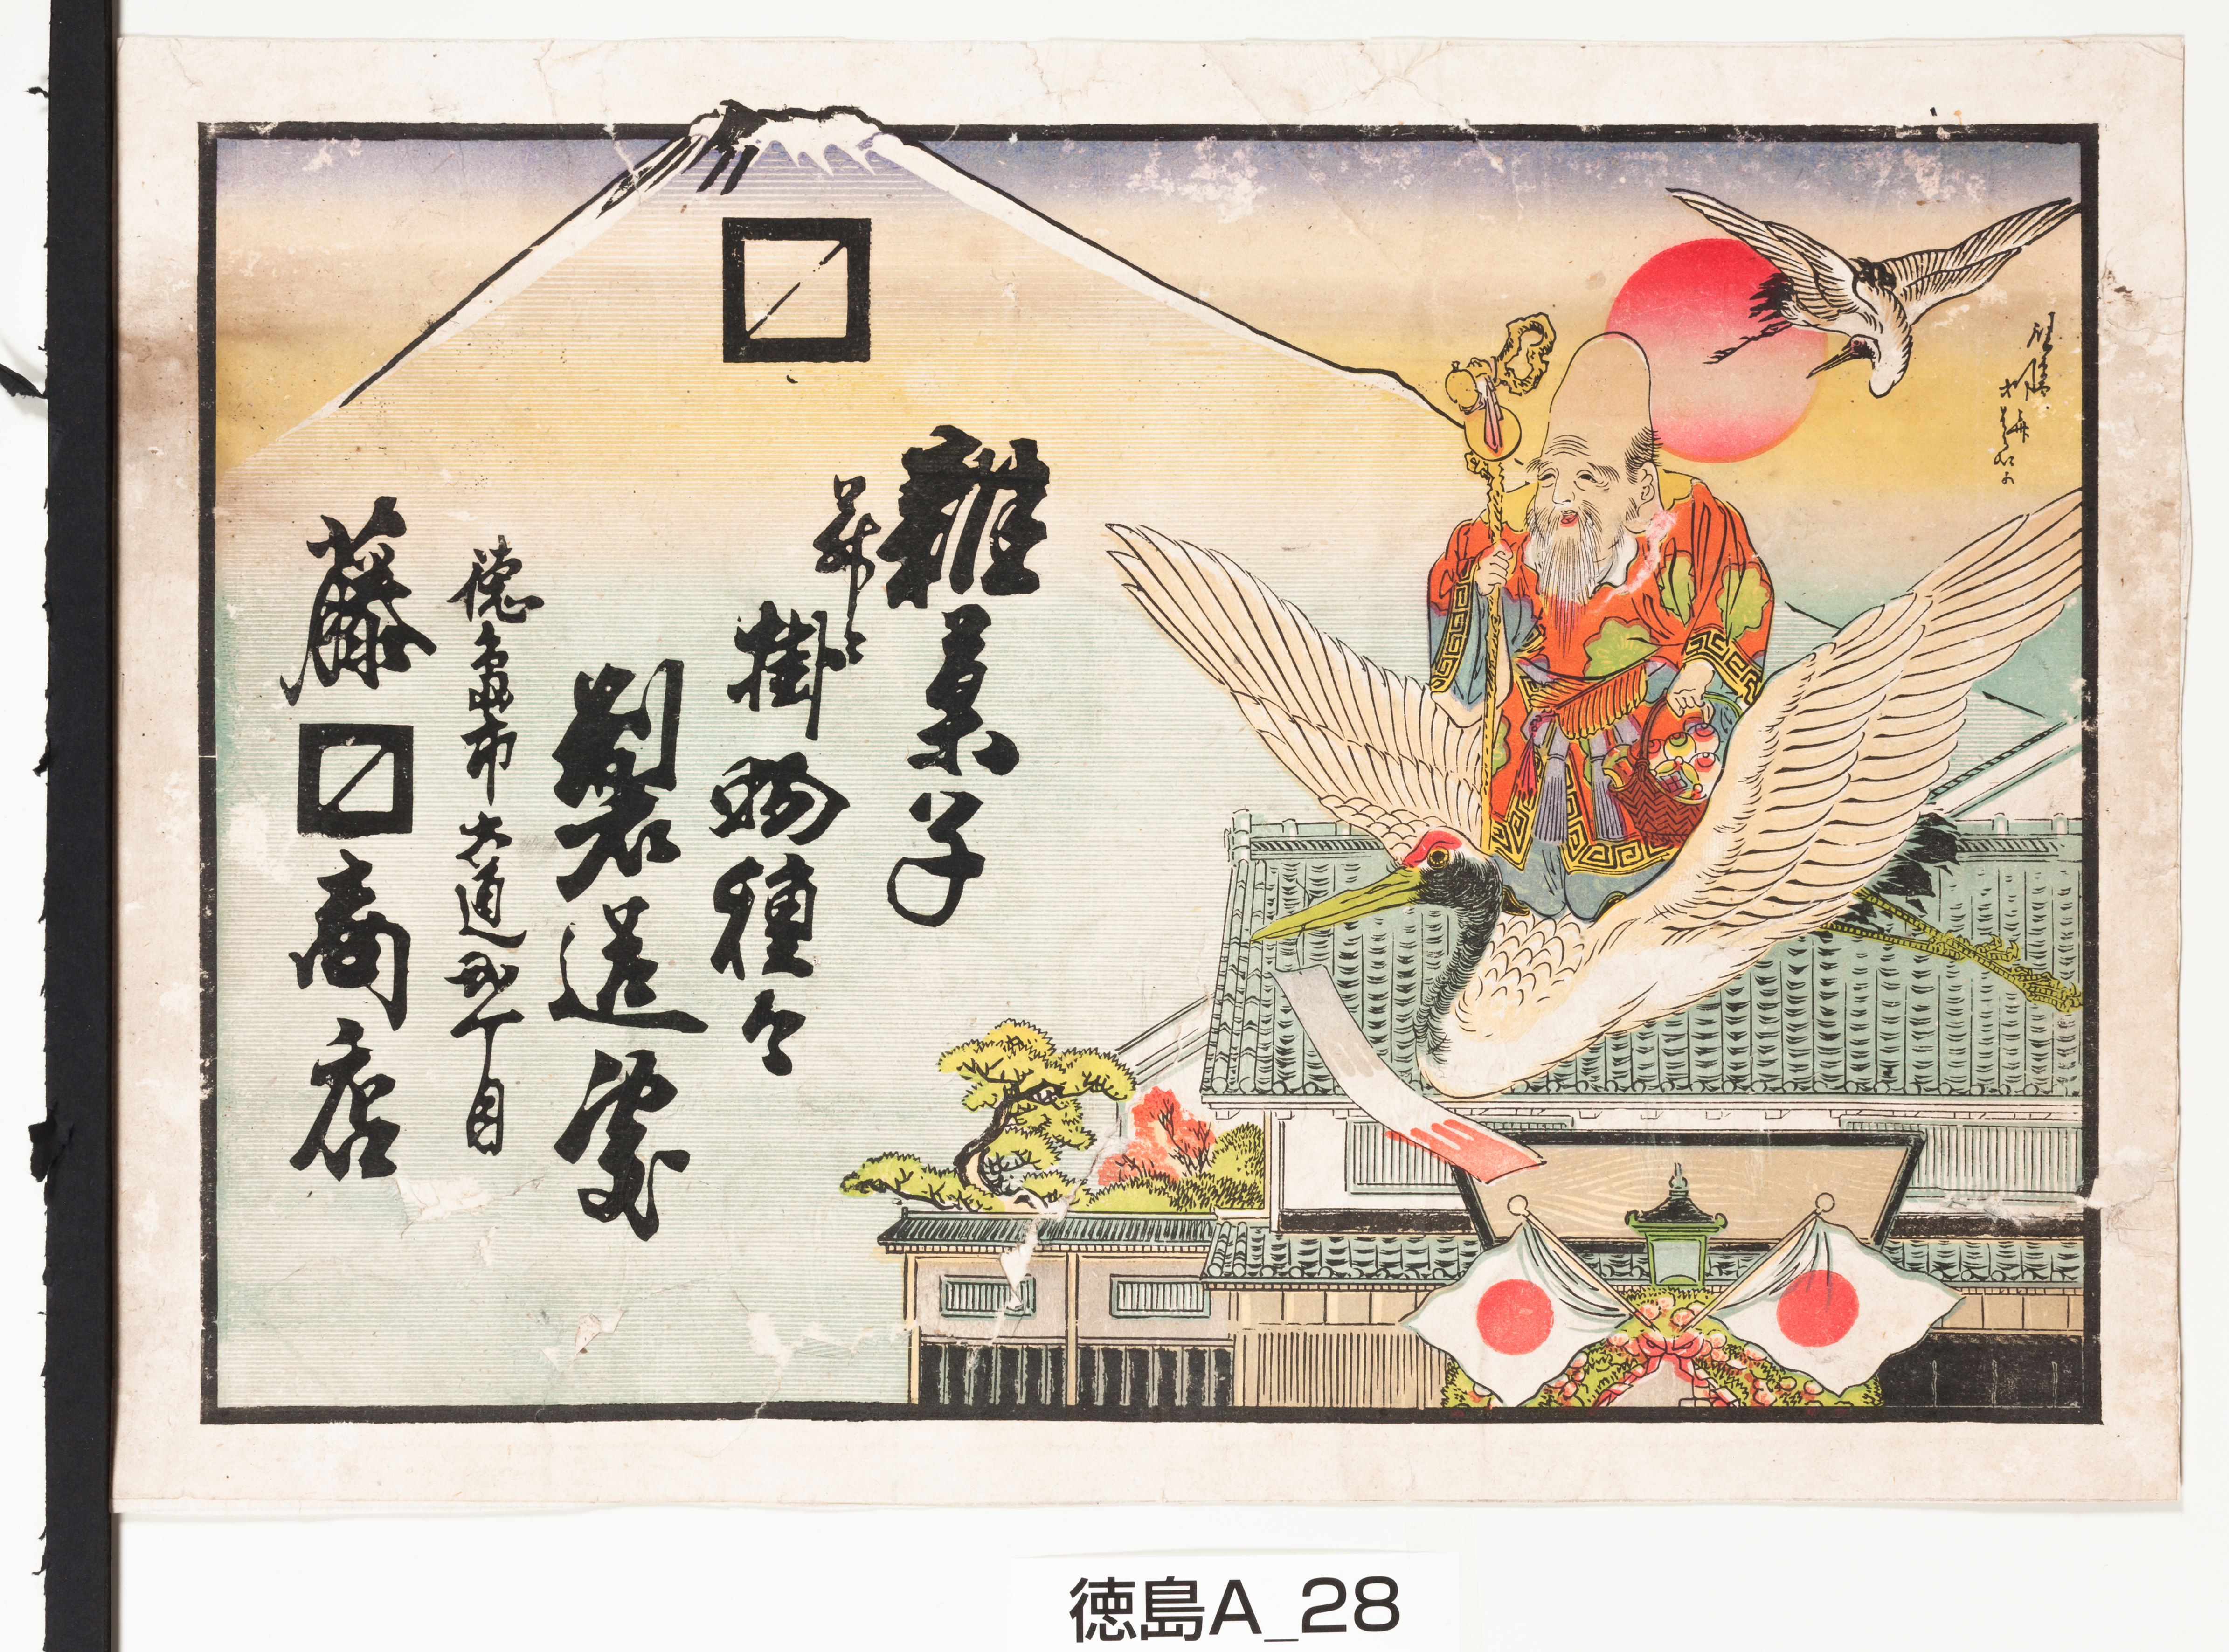 雑菓子
掛物種々
製造処
徳島市大通弐丁目
藤商店
徳島A_28